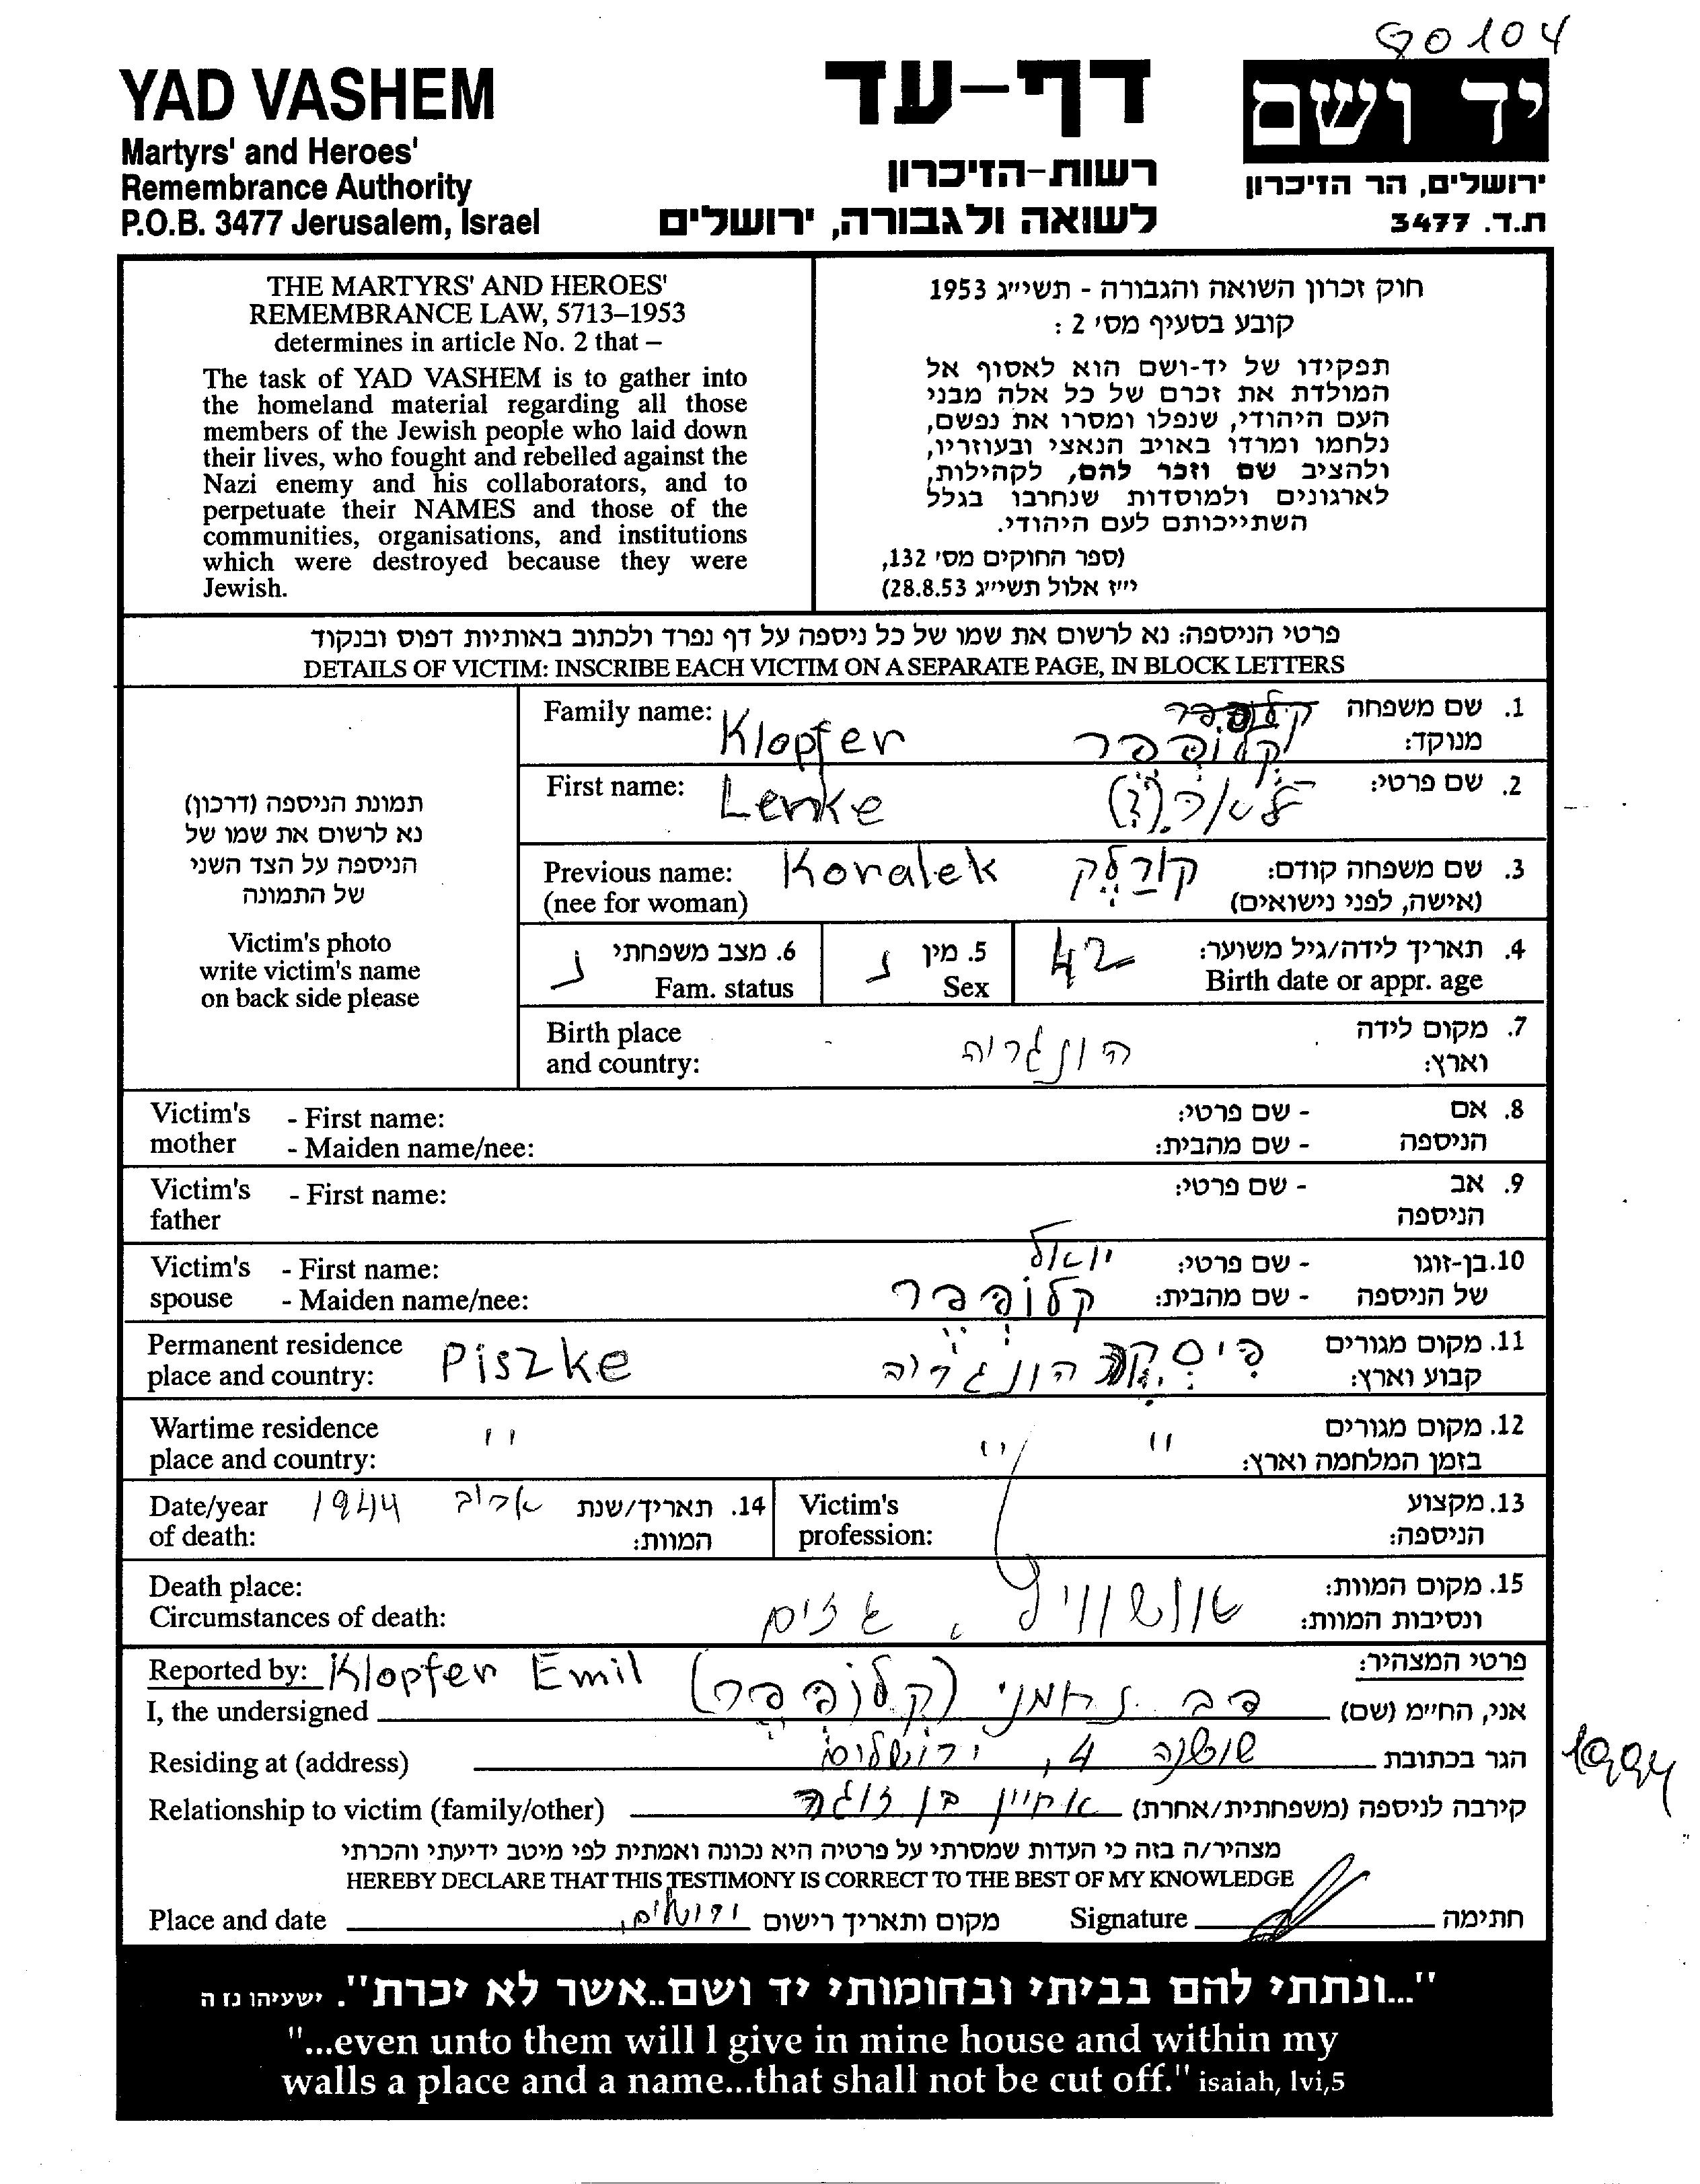 90104
YAD VASHEM
Martyrs' and Heroes'
Remembrance Authority
P.O.B. 3477 Jerusalem, Israel
דף-עד
רשות-הזיכרון
לשואה ולגבורה, ירושלים
יד ושם
ירושלים, הר הזיכרון
ת.ד. 3477
THE MARTYRS' AND HEROES'
REMEMBRANCE LAW, 5713–1953
determines in article No. 2 that –
The task of YAD VASHEM is to gather into
the homeland material regarding all those
members of the Jewish people who laid down
their lives, who fought and rebelled against the
Nazi enemy and his collaborators, and to
perpetuate their NAMES and those of the
communities, organisations, and institutions
which were destroyed because they were
Jewish.
חוק זכרון השואה והגבורה - תשי״ג 1953
קובע בסעיף מס׳ 2 :
תפקידו של יד-ושם הוא לאסוף אל
המולדת את זכרם של כל אלה מבני
העם היהודי, שנפלו ומסרו את נפשם,
נלחמו ומרדו באויב הנאצי ובעוזריו,
ולהציב שם וזכר להם, לקהילות,
לארגונים ולמוסדות שנחרבו בגלל
השתייכותם לעם היהודי.
(ספר החוקים מס׳ 132,
י״ז אלול תשי״ג 28.8.53)
פרטי הניספה: נא לרשום את שמו של כל ניספה על דף נפרד ולכתוב באותיות דפוס ובנקוד
DETAILS OF VICTIM: INSCRIBE EACH VICTIM ON A SEPARATE PAGE, IN BLOCK LETTERS
תמונת הניספה (דרכון)
נא לרשום את שמו של
הניספה על הצד השני
של התמונה
Victim's photo
write victim's name
on back side please
1. שם משפחה
מנוקד: קלופפר
Family name: Klopfer
2. שם פרטי:
First name: Lenke
3. שם משפחה קודם: קורלק
(אישה, לפני נישואים)
Previous name: Koralek
(nee for woman)
4. תאריך לידה/גיל משוער: 42
Birth date or appr. age
5. מין נ
Sex
6. מצב משפחתי נ
Fam. status
7. מקום לידה
וארץ: הונגריה
Birth place
and country:
8. אם - שם פרטי:
הניספה - שם מהבית:
Victim's - First name:
mother - Maiden name/nee:
9. אב - שם פרטי:
הניספה
Victim's - First name:
father
10. בן-זוגו - שם פרטי: יואל
של הניספה - שם מהבית: קלופפר
Victim's - First name:
spouse - Maiden name/nee:
11. מקום מגורים
קבוע וארץ: הונגריה
Permanent residence
place and country: Piszke
12. מקום מגורים
בזמן המלחמה וארץ: " "
Wartime residence
place and country: "
13. מקצוע
הניספה:
Victim's
profession:
14. תאריך/שנת
המוות: אביב 1944
Date/year
of death:
15. מקום המוות:
ונסיבות המוות: אושוויץ, גזים
Death place:
Circumstances of death:
פרטי המצהיר:
Reported by: Klopfer Emil
אני, החי״מ (שם) דב נחמני (קלופפר)
I, the undersigned
הגר בכתובת 4, ירושלים
Residing at (address)
קירבה לניספה (משפחתית/אחרת) אחיין בן זוגה
Relationship to victim (family/other)
1994
מצהיר/ה בזה כי העדות שמסרתי על פרטיה היא נכונה ואמתית לפי מיטב ידיעתי והכרתי
HEREBY DECLARE THAT THIS TESTIMONY IS CORRECT TO THE BEST OF MY KNOWLEDGE
Place and date מקום ותאריך רישום ירושלים, Signature חתימה
"...ונתתי להם בביתי ובחומותי יד ושם..אשר לא יכרת". ישעיהו נו ה
"...even unto them will I give in mine house and within my
walls a place and a name...that shall not be cut off." isaiah, lvi,5